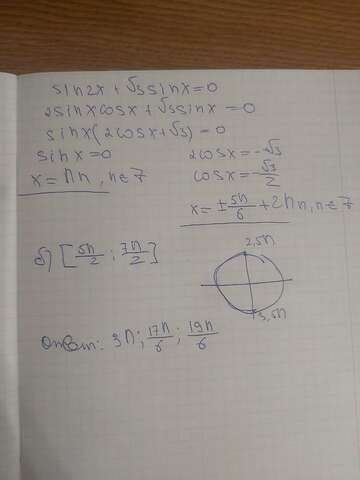 sin2x + √3 sinx = 0
2sinxcosx + √3 sinx = 0
sinx(2cosx + √3) = 0
sinx = 0
x = πn, n∈Z
2cosx = -√3
cosx = -√3/2
x = ±5π/6 + 2πn, n∈Z
б) [5π/2 ; 7π/2]
2,5π
3,5π
Ответ: 3π; 17π/6; 19π/6